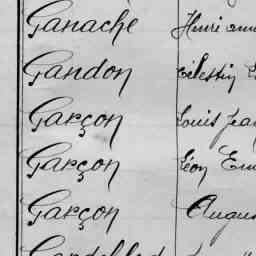 Ganache Henri
Gandon Célestin
Garçon Louis Jean
Garçon Léon
Garçon